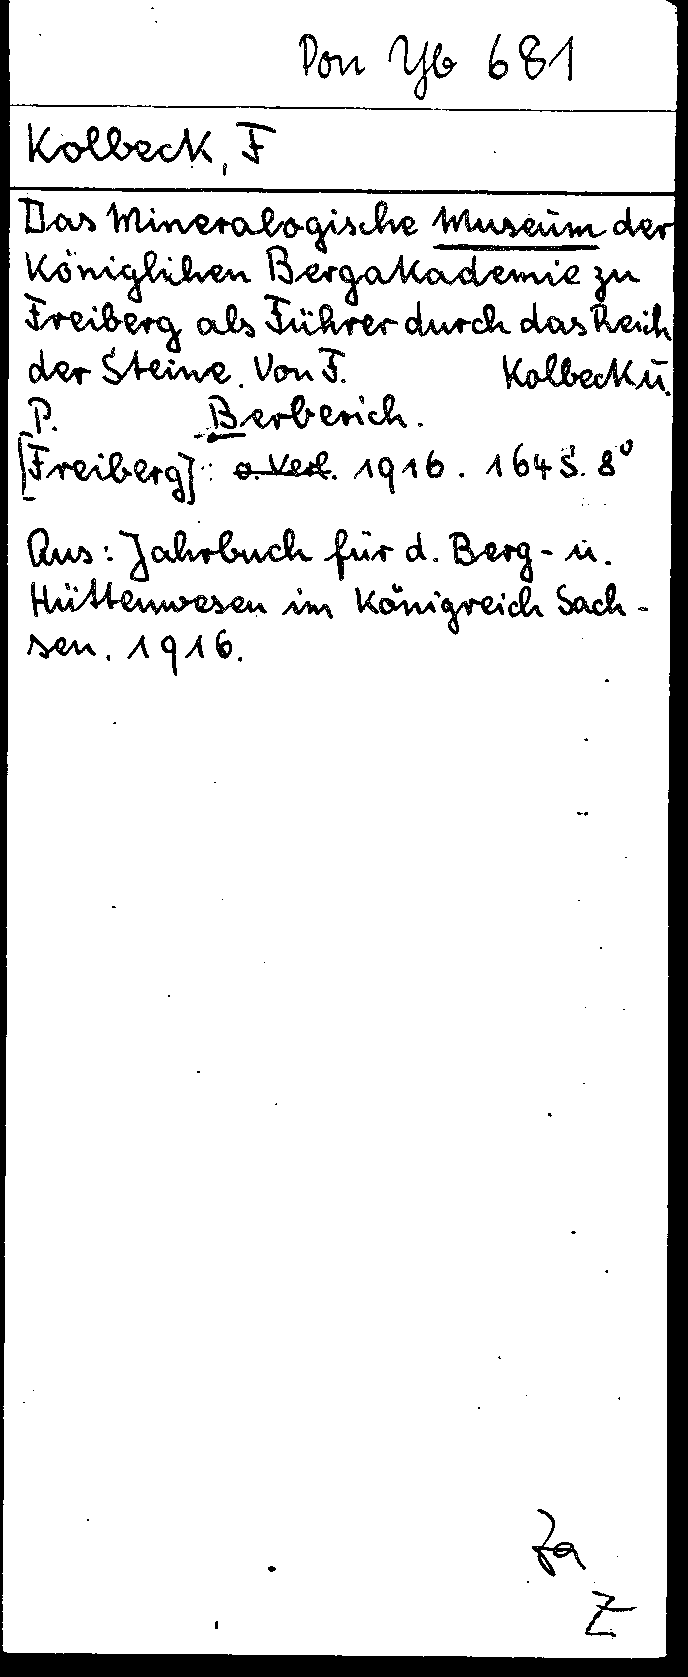 Pon Yb 681
Kolbeck, F
Das Mineralogische Museum der
Königlichen Bergakademie zu
Freiberg als Führer durch das Reich
der Steine. Von F. Kolbeck u.
P. Berberich.
[Freiberg]: o. Verl. 1916. 164 S. 8°
Aus: Jahrbuch für d. Berg- u.
Hüttenwesen im Königreich Sach-
sen. 1916.
Z